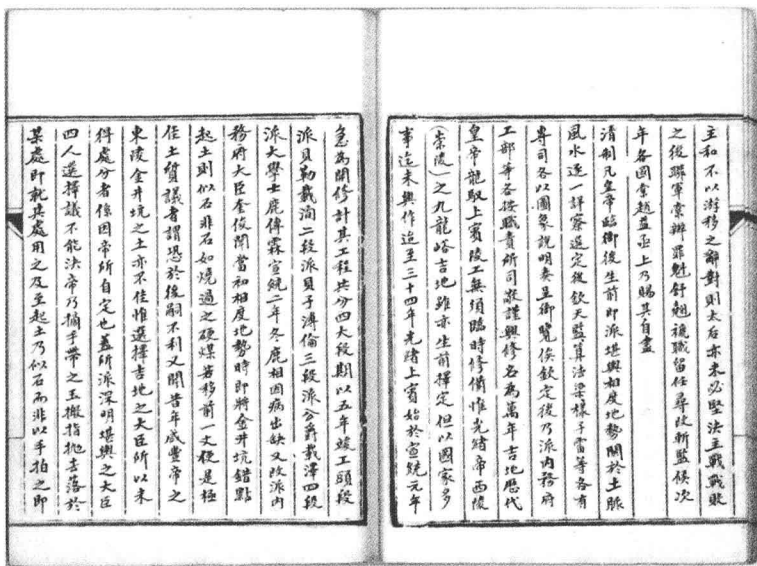 主和不以游移之辭對則太后亦未必堅決主戰戰敗
之後聯軍索辦罪魁舒翹褫職留任尋改斬監候次
年各國索越益亟上乃賜其自盡
清制凡皇帝臨御後生前即派堪輿相度地勢關於土脈
風水逐一詳察選定後欽天監算法梁樣子雷等各有
專司各以圖象說明奏呈御覽俟欽定後乃派內務府
工部等各按職責所司敬謹興修名為萬年吉地歷代
皇帝龍馭上賓陵工無須臨時修備惟光緒帝西陵
(崇陵)之九龍峪吉地雖亦生前擇定但以國家多
事迄未興作迨至三十四年光緒上賓始於宣統元年
急為開修計其工程共分四大段期以五年竣工頭段
派貝勒載洵二段派貝子溥倫三段派公爵載澤四段
派大學士鹿傳霖宣統二年冬鹿相因病出缺又改派內
務府大臣奎俊聞當初相度地勢時即將金井坑錯點
起土則似石非石如燒過之硬煤若移前一丈便是極
佳土質議者謂恐於後嗣不利又聞昔年咸豐帝之
東陵金井坑之土亦不佳惟選擇吉地之大臣所以未
得處分者係因帝所自定也蓋所派深明堪輿之大臣
四人選擇議不能決帝乃摘手帶之玉搬指拋去落於
某處即就其處用之及至起土乃似石而非以手拍之即